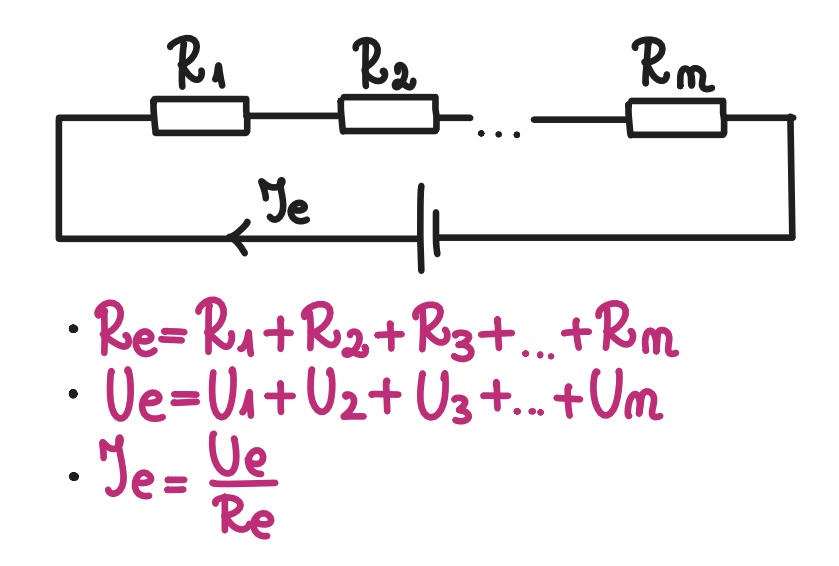 R₁ R₂ ... Rₙ
Iₑ
• Rₑ = R₁ + R₂ + R₃ + ... + Rₙ
• Uₑ = U₁ + U₂ + U₃ + ... + Uₙ
• Iₑ = Uₑ / Rₑ